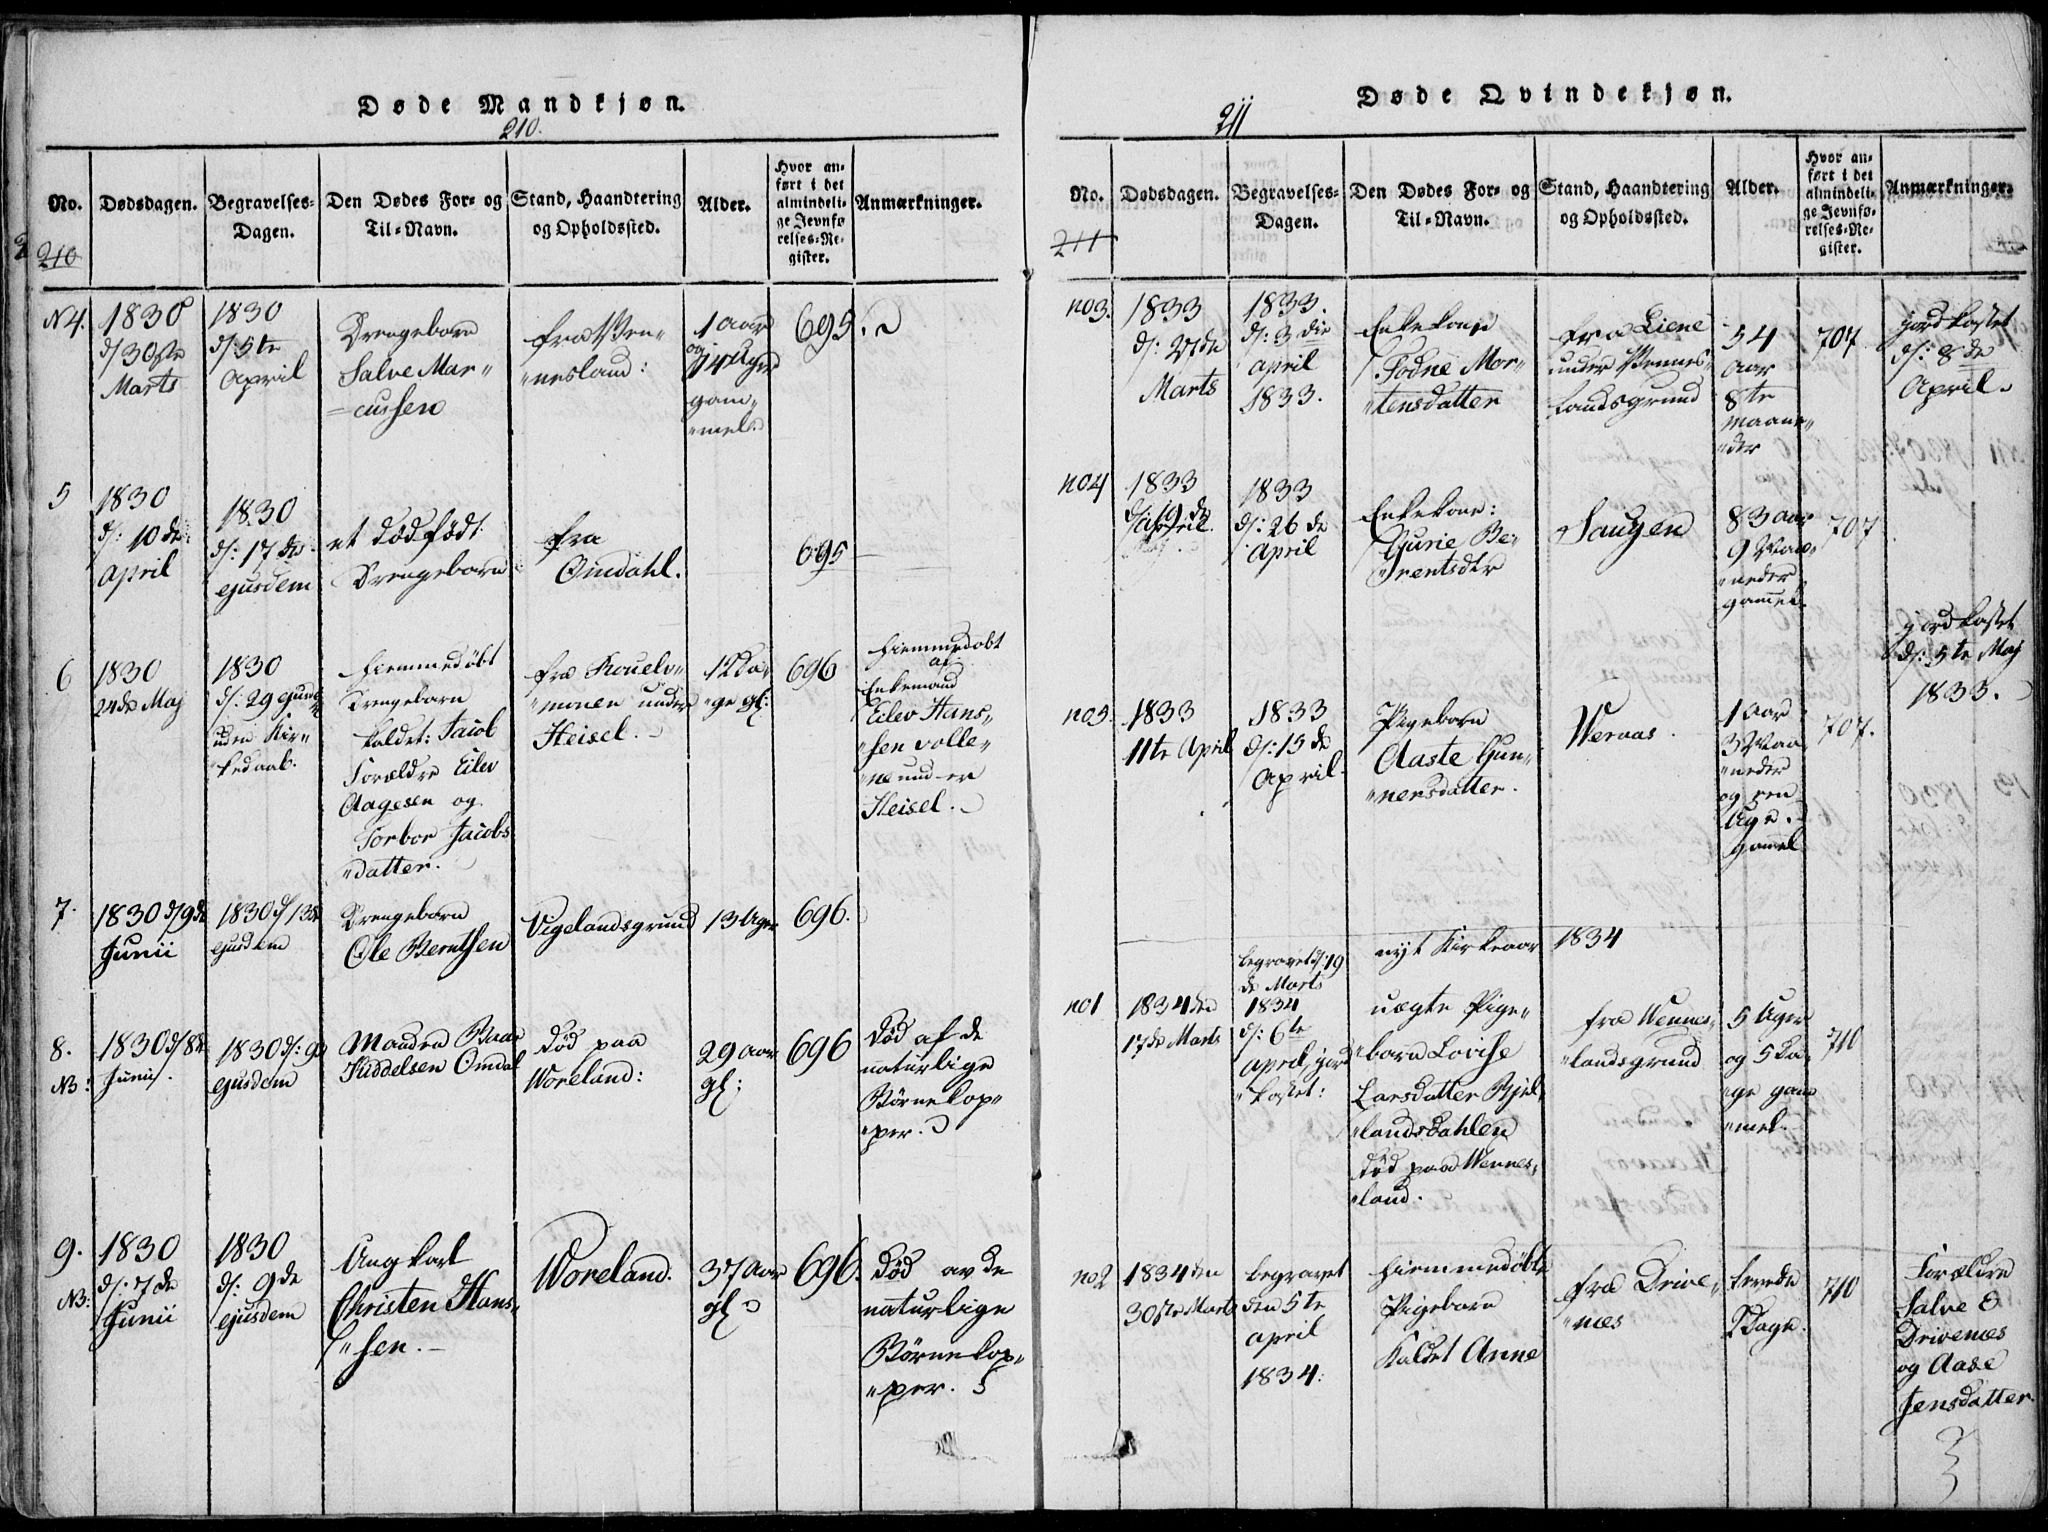 Døde Mandkjøn.
210.
No.
Dødsdagen.
Begravelses-
Dagen.
Den Dødes For- og
Til-Navn.
Stand, Haandtering
og Opholdssted.
Alder.
Hvor an-
ført i det
almindeli-
ge Jevnfø-
relses-Re-
gister.
Anmærkninger.
210
N4.
1830
d/30te
Marts
1830
d/5te
April
Drengebarn
Salve Mar-
=cussen
fra Wen-
"nesland:
1 aar
og
14 Uger
gam-
"mel.
695.
5
1830
d: 10 de
april
1830
d: 17 de
ejusdem
et dødfødt
Drengebarn
fra
Omdahl.
695
6
1830
24de Maj
1830
d: 29
uden Kir-
"
hiemmedøbt
Drengebarn
kaldet: Jacob
Forældre Eilev
Aagesen og
Torbor Jacobs
"datter.
fra
"monen under
Heisel.
12 Da-
"ge gl:
696
hiemmedøbt
af
Enkemand
Eilev Hans-
"sen volle-
"ne under
Heisel.
7.
1830 d/9de
Junii
1830 d/13de
ejusdem
Drengebarn
Ole Berntsen
Vigelandsgrund
13 Uger
696.
8.
NB:
1830 d/8de
Junii.
1830 d: 9de
ejusdem
Manden
Kiddelsen Omdal
Død paa
Woreland:
29 aar
gl:
696
Død af de
naturlige
Børnekop-
"per.
9.
NB:
1830
d: 7 de
Junii
1830
d: 9 de
ejusdem
Ung karl
Christen Hans-
"sen.
Woreland.
37 aar
gl
696.
Død av de
naturlige
Børnekop-
"per.
Døde Qvindekjøn.
211
No.
Dødsdagen.
Begravelses-
Dagen.
Den Dødes For- og
Til-Navn.
Stand, Haandtering
og Opholdssted.
Alder.
Hvor an-
ført i det
almindeli-
ge Jevnfø-
relses-Re-
gister.
Anmærkninger.
211
no3.
1833
d: 27de
Marts
1833.
d: 3 die
april
1833.
Enkekone
Todne Mor-
"tensdatter
fra Liene
under Wennes-
landsgrund
54
aar
8te
maane-
"der
707
jordkastet
d: 8 de
April.
no4
1833
d: 19 de
april
1833
d: 26 de
April
Enkekone:
Gurie Be-
"rentsdtr
Saugen
83 aar
9 Maa-
"neder
gammel.
707
no5.
1833
11te April
1833
d: 15 de
April.
Pigebarn
Aaste Gun-
"nersdatter.
Weraas.
1 aar
3 Maa-
"neder
og een
Uge.
gammel
707.
jordkastet
d: 5te Maj
1833.
nyt Kirkeaar 1834
no1
1834 den
17de Marts
begravet d: 19
de Marts
1834
d: 6te
april jord
"kastet:
uægte Pige-
"barn Lovise
Larsdatter Bjel-
"landsdahlen
død paa Wennes-
"land.
fra Wennes-
"landsgrund
5 Uger
og 5 Da-
"ge gam
"mel.
710
no2
1834 den
30te Marts
begravet
den 5te
april
1834:
hiemmedøbte
Pigebarn
Kaldet Anne
fra Drive-
"næs
Dage.
710
Forældre
Salve
Drivenæs
og Aase
Jensdatter.